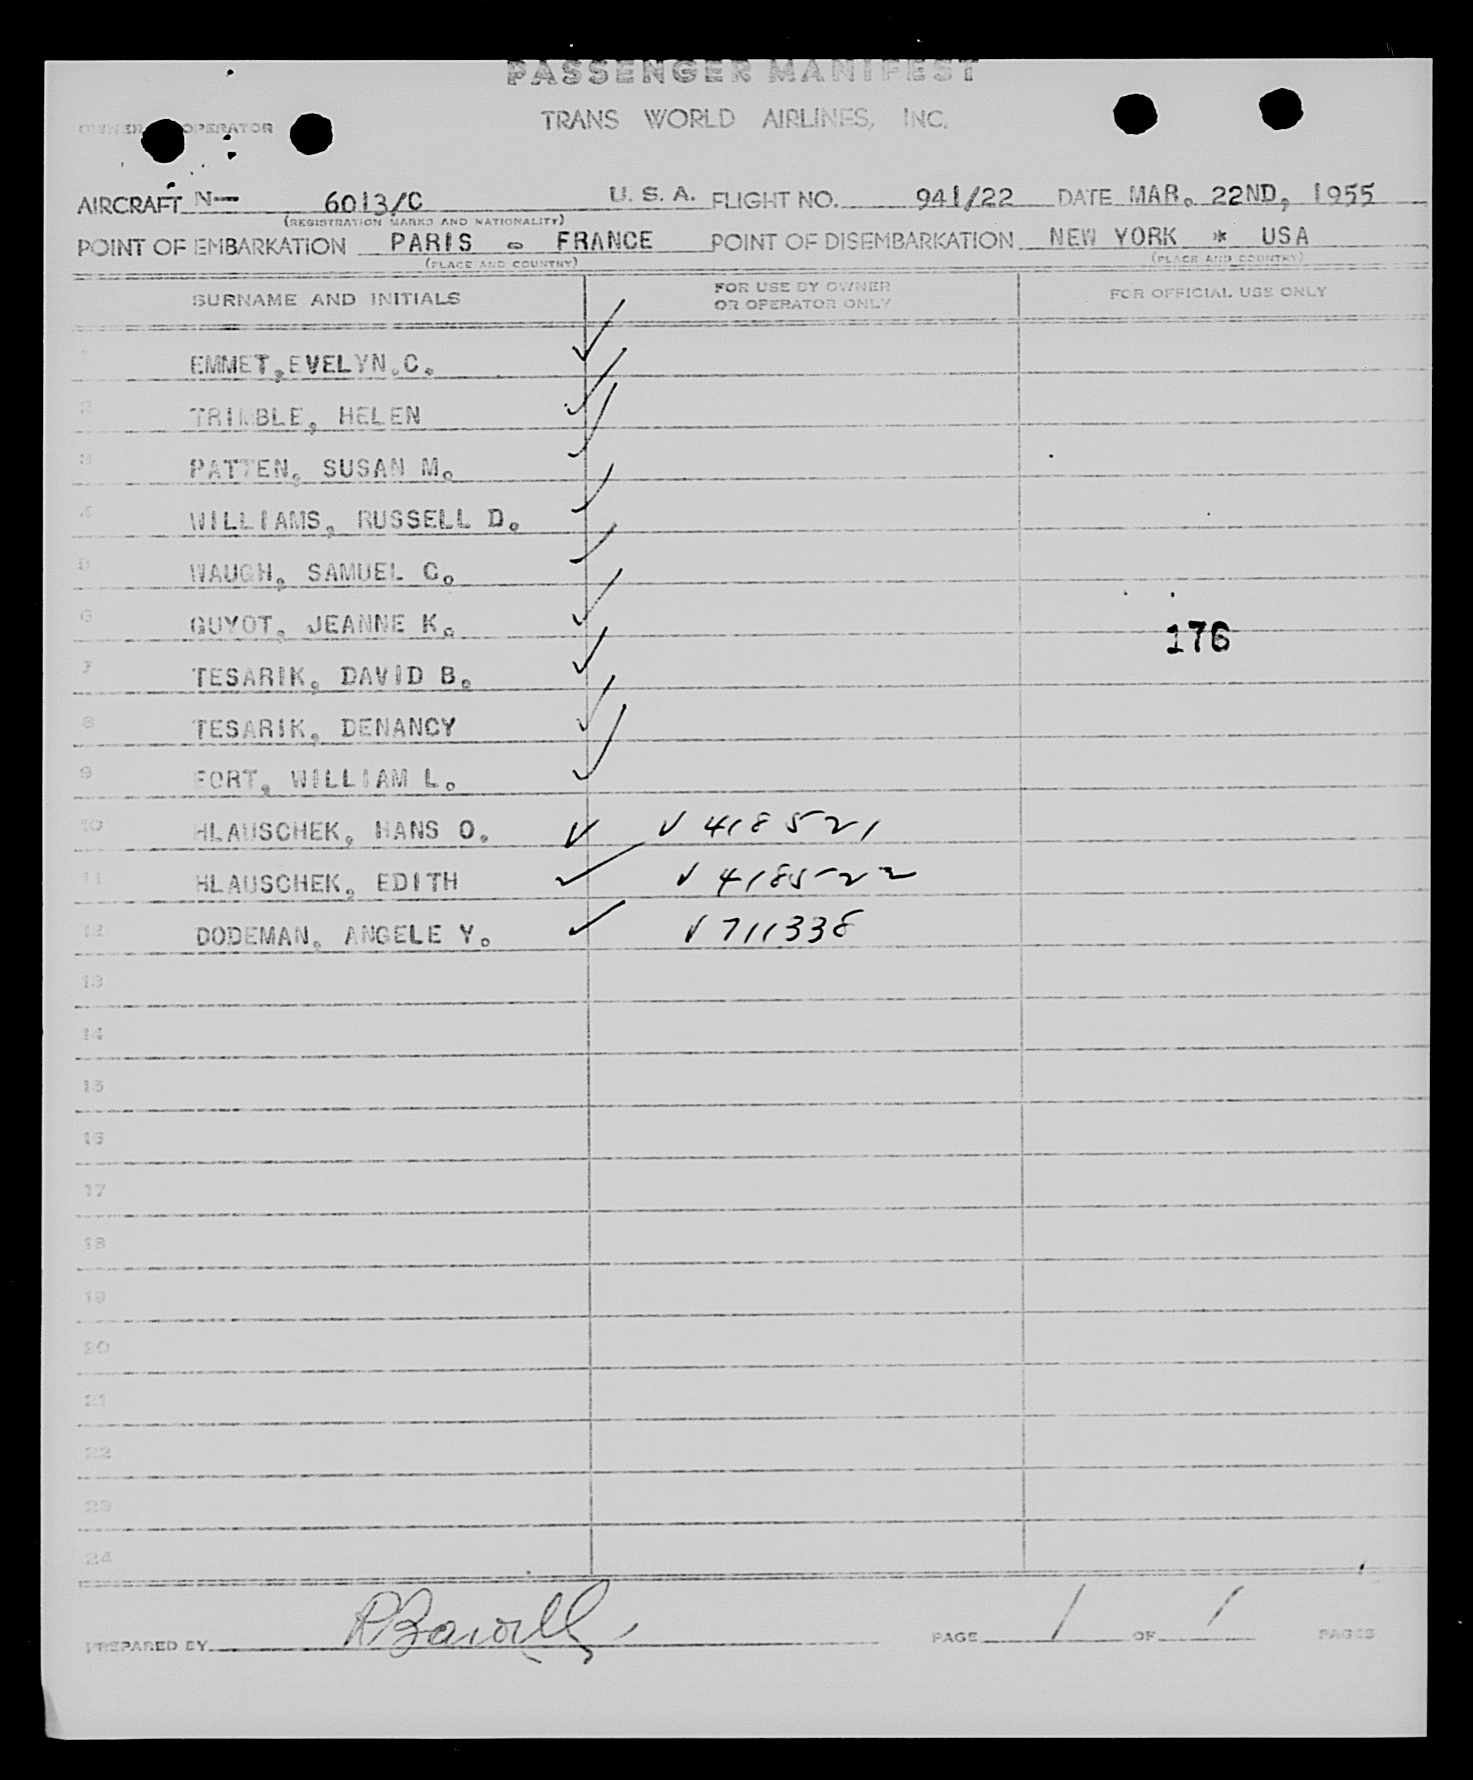 PASSENGER MANIFEST
TRANS WORLD AIRLINES, INC.
OWNER OPERATOR
AIRCRAFT N- 6013/C U. S. A. FLIGHT NO. 941/22 DATE MAR. 22ND, 1955
(REGISTRATION MARKS AND NATIONALITY)
POINT OF EMBARKATION PARIS - FRANCE POINT OF DISEMBARKATION NEW YORK * USA
(PLACE AND COUNTRY) (PLACE AND COUNTRY)
SURNAME AND INITIALS FOR USE BY OWNER OR OPERATOR ONLY FOR OFFICIAL USE ONLY
EMMET,EVELYN.C. ✓
2 TRIMBLE, HELEN ✓
3 PATTEN, SUSAN M. ✓
4 WILLIAMS, RUSSELL D. ✓
5 WAUGH, SAMUEL C. ✓
6 GUYOT, JEANNE K. ✓ 176
7 TESARIK, DAVID B. ✓
8 TESARIK, DENANCY ✓
9 FORT, WILLIAM L. ✓
10 HLAUSCHEK, HANS O. ✓ ✓ 418521
11 HLAUSCHEK, EDITH ✓ ✓ 418522
12 DODEMAN, ANGELE Y. ✓ ✓ 711338
13
14
15
16
17
18
19
20
21
22
23
24
PREPARED BY PAGE 1 OF 1 PAGES